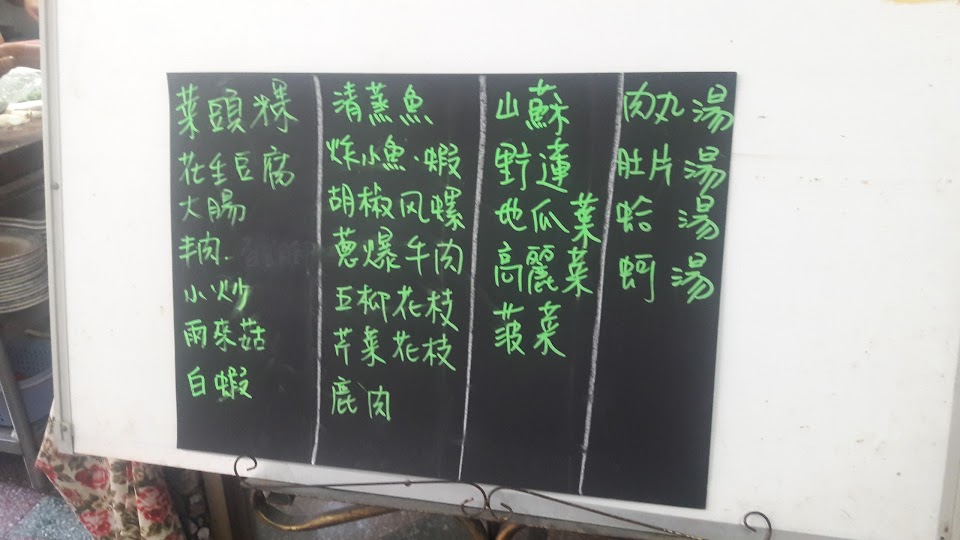 菜頭粿
花生豆腐
大腸
羊肉.
小炒
雨來菇
白蝦
清蒸魚
炸小魚.蝦
胡椒风螺
蔥爆牛肉
五柳花枝
芹菜花枝
鹿肉
山蘇
野蓮
地瓜葉
高麗菜
菠菜
肉丸湯
肚片湯
蛤湯
蚵湯